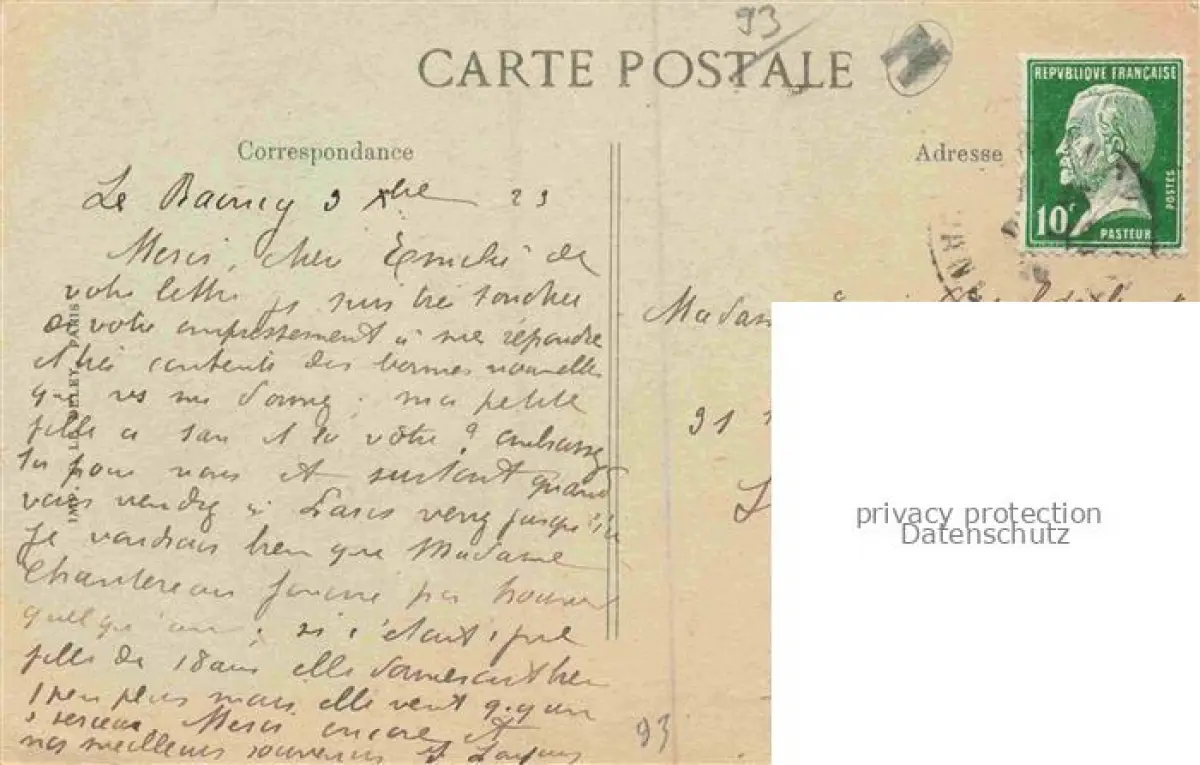 93
CARTE POSTALE
REPVBLIQVE FRANÇAISE
10c
POSTES
PASTEUR
Correspondance
Adresse
Le Raincy 9 Xbre 23
Merci, cher de
votre lettre je suis très touchée
de votre empressement à me répondre
et très contente des bonnes nouvelles
que vs me donnez ; ma petite
fille a 1 an et la vôtre ? embrassez
la pour nous et surtout quand
vous viendrez à Paris venez jusqu'ici
Je voudrais bien que Madame
Chantereau puisse pas trouver
quelqu'un ; si c'était 1 ptte
fille de 18 ans elle donnerait bien
1 peu plus mais elle veut q.q'un
Merci encore et
nos meilleurs souvenirs et
Madam
91
93
PARIS
privacy protection
Datenschutz